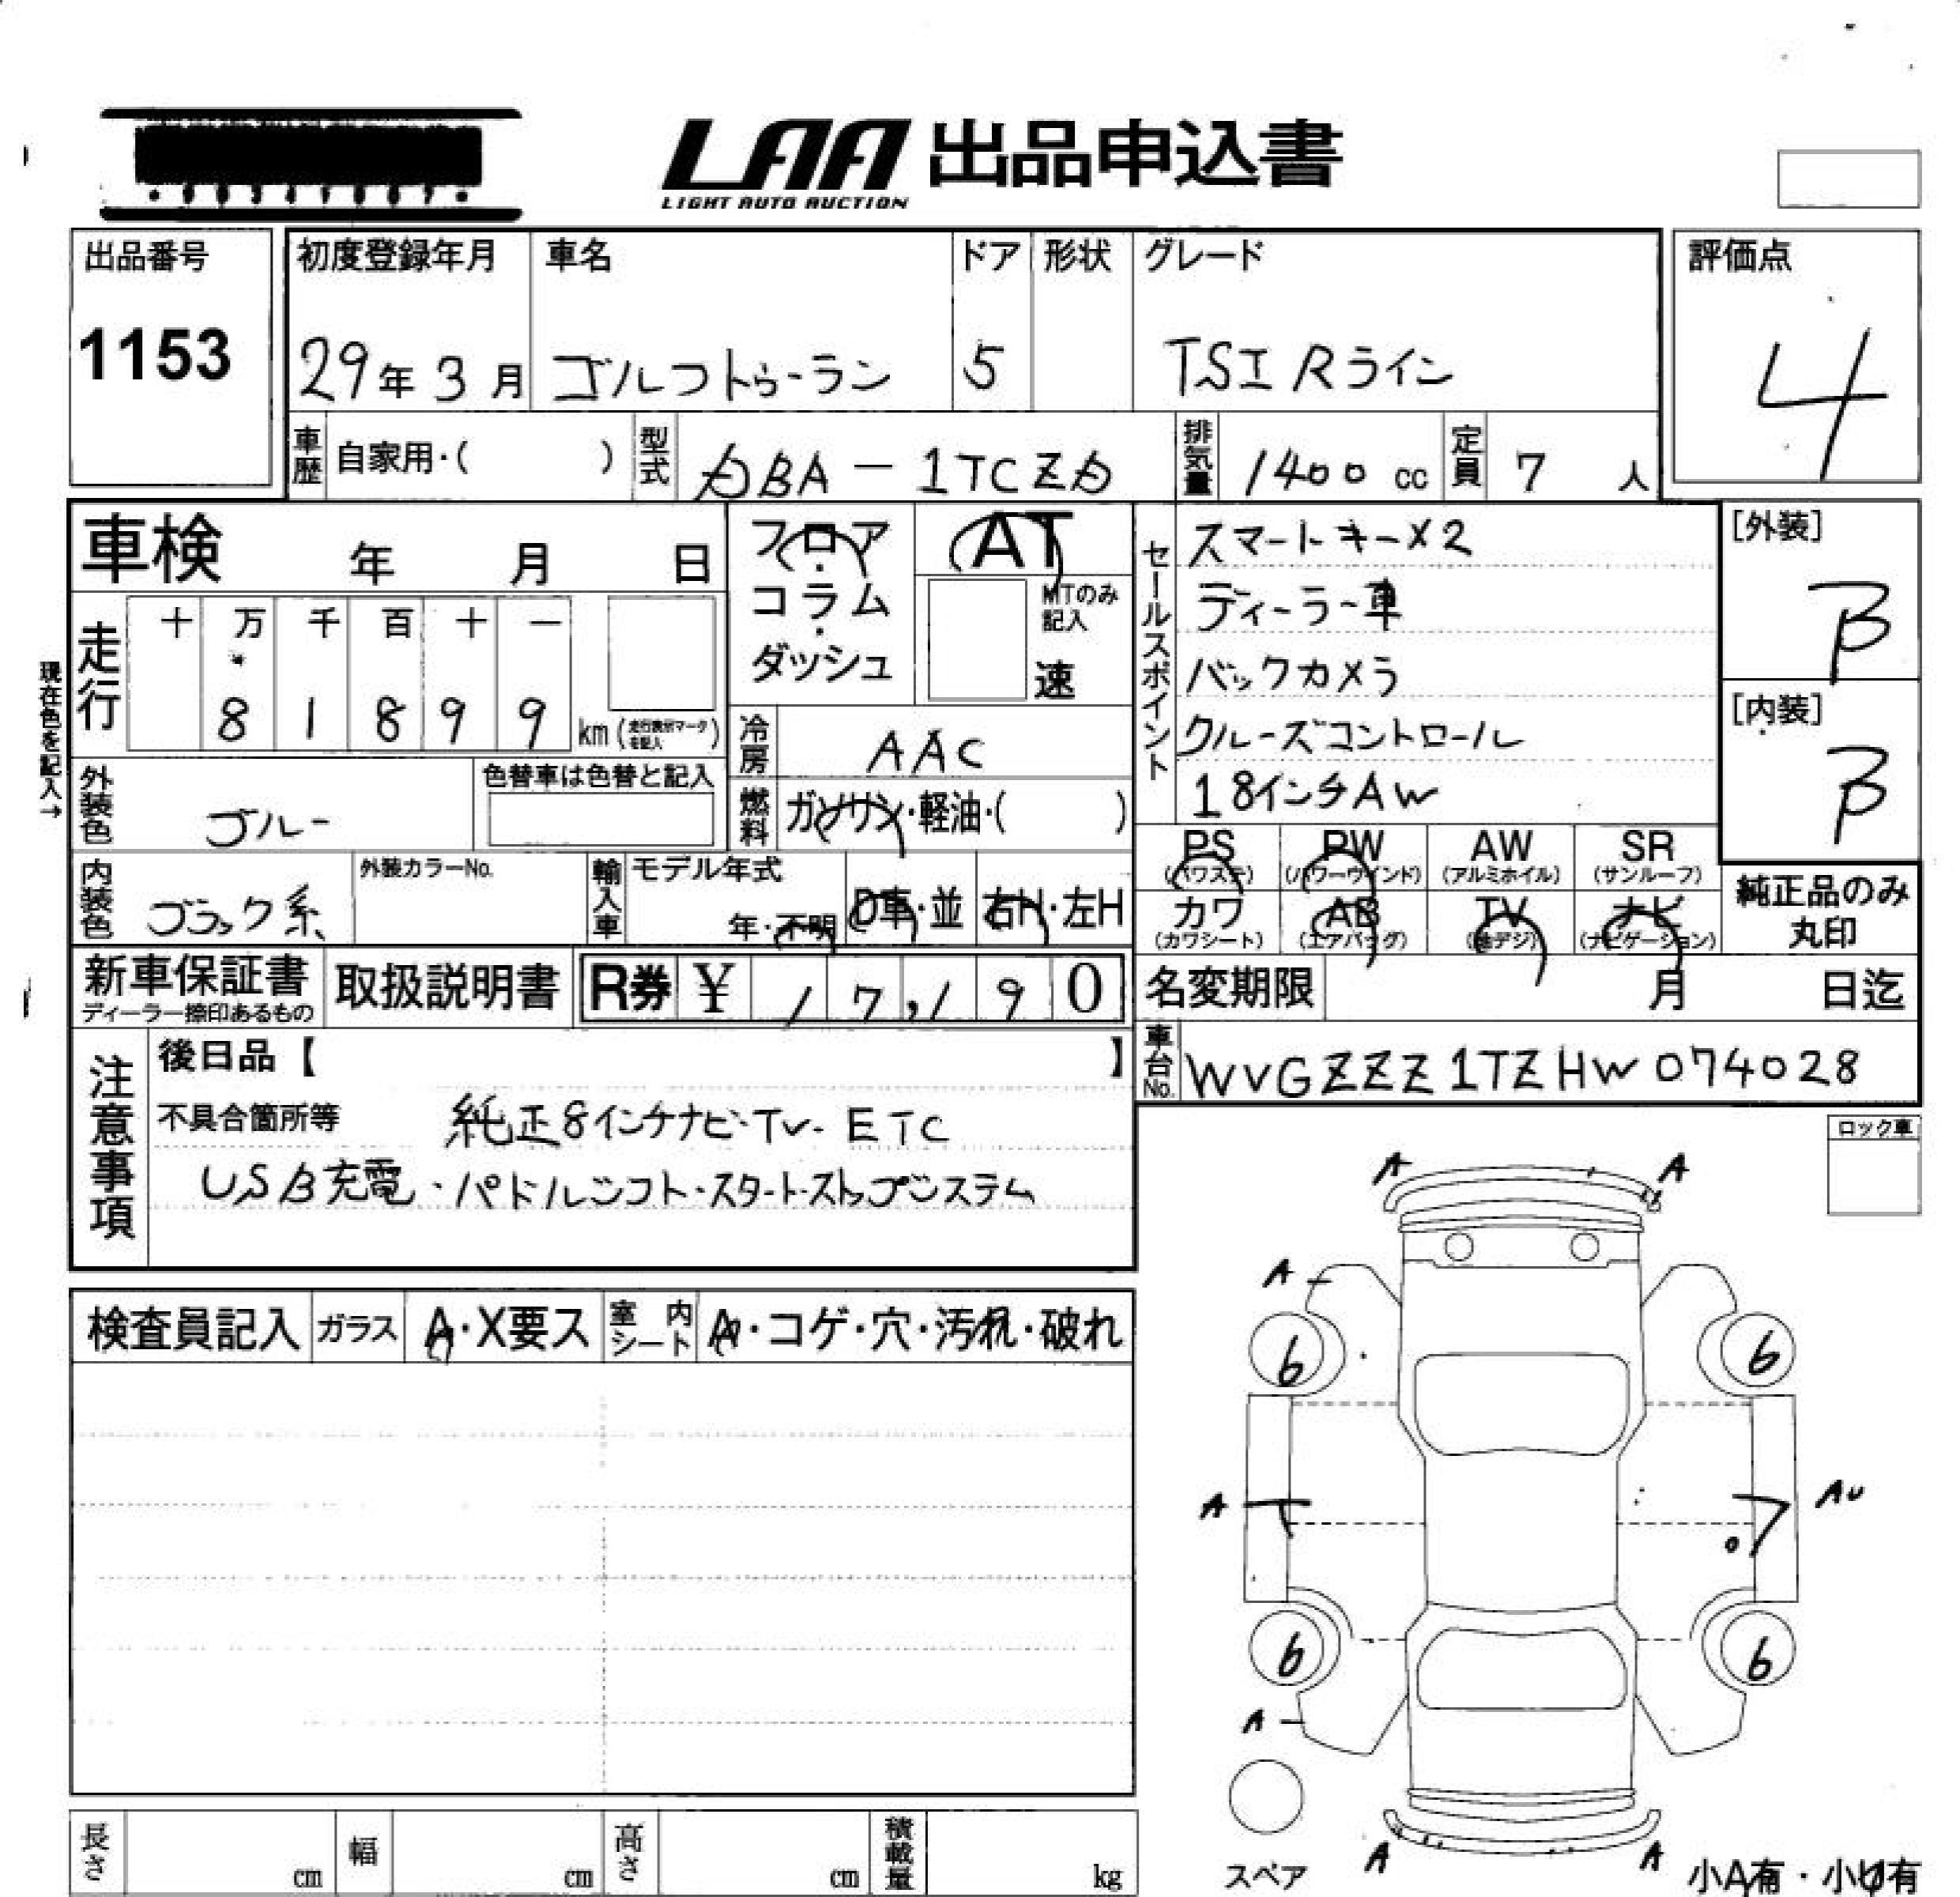 LAA 出品申込書
LIGHT AUTO AUCTION
出品番号
1153
初度登録年月
29年3月
車名
ゴルフトゥーラン
ドア
5
形状
グレード
TSI Rライン
評価点
4
車歴 自家用・( )
型式 ABA-1TCZA
排気量 1400 cc
定員 7 人
車検 年 月 日
フロア・コラム・ダッシュ
AT
MTのみ記入
速
セールスポイント
スマートキーX2
ディーラー車
バックカメラ
クルーズコントロール
18インチAW
[外装]
B
[内装]
B
現在色を記入→
走行 十 万 千 百 十 一
8 1 8 9 9 km (走行換算マークを記入)
冷房 AAC
外装色 ブルー
色替車は色替と記入
燃料 ガソリン・軽油・( )
PS (パワステ)
PW (パワーウインド)
AW (アルミホイル)
SR (サンルーフ)
カワ (カワシート)
AB (エアバッグ)
TV (地デジ)
ナビ (ナビゲーション)
純正品のみ丸印
内装色 ブラック系
外装カラーNo.
輸入車 モデル年式 年・不明 D車・並 右H・左H
新車保証書
ディーラー捺印あるもの
取扱説明書
R券 ¥ 17,190
名変期限 月 日迄
車台No. WVGZZZ1TZHW074028
注意事項
後日品【 】
不具合箇所等 純正8インチナビ・TV・ETC
USB充電・パドルシフト・スタートストップシステム
ロック車
検査員記入 ガラス A・X要ス 室内シート A・コゲ・穴・汚れ・破れ
A A
A
6 6
A AU
6 6
A
スペア
A A
小A有・小U有
長さ cm 幅 cm 高さ cm 積載量 kg